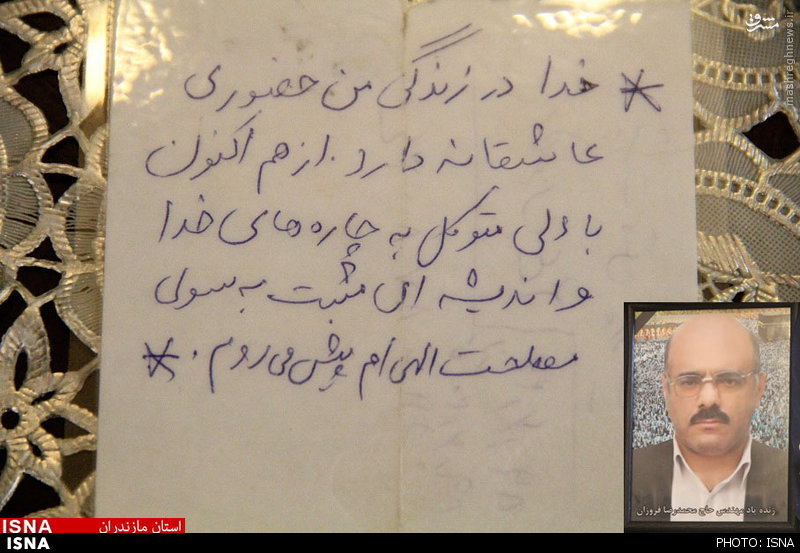 مشرق
mashreghnews.ir
* خدا در زندگی من حضوری
عاشقانه دارد. از هم اکنون
با دلی متوکل به چاره های خدا
و اندیشه ای مثبت به سوی
مصلحت الهی ام پیش می روم. *
زنده یاد مهندس حاج محمدرضا فروزان
ISNA استان مازندران
ISNA PHOTO: ISNA